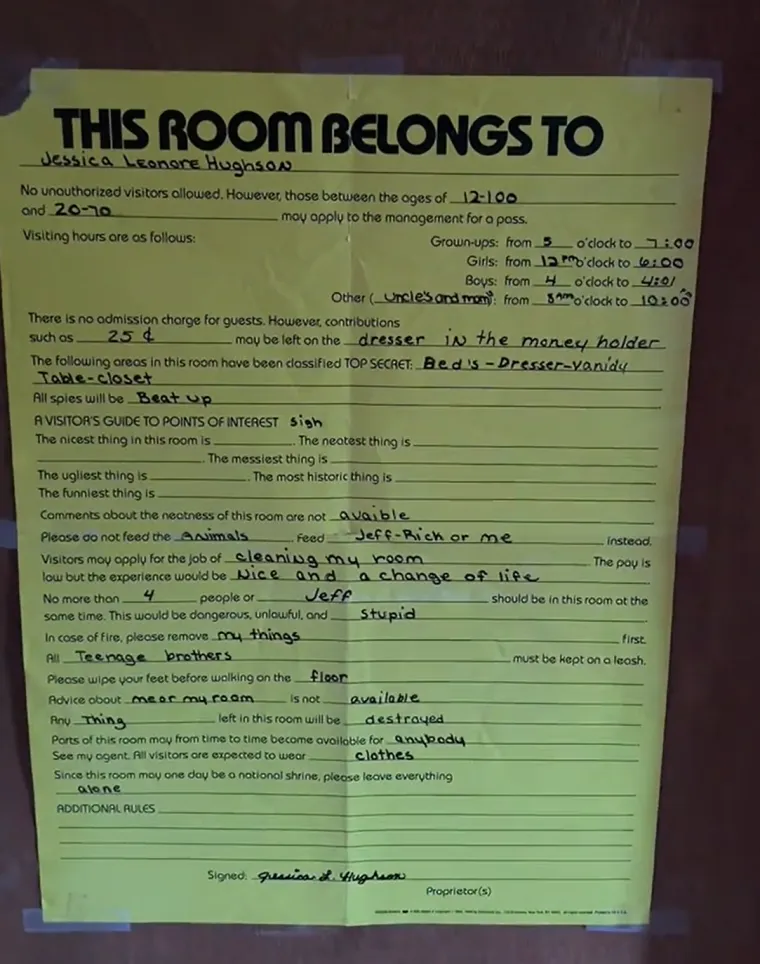 THIS ROOM BELONGS TO
Jessica Leonore Hughson
No unauthorized visitors allowed. However, those between the ages of 12-100
and 20-70 may apply to the management for a pass.
Visiting hours are as follows: Grown-ups: from 5 o'clock to 7:00
Girls: from 12 PM o'clock to 6:00
Boys: from 4 o'clock to 4:01
Other (uncle's and mom's): from 8 AM o'clock to 10:00
There is no admission charge for guests. However, contributions
such as 25 ¢ may be left on the dresser in the money holder
The following areas in this room have been classified TOP SECRET: Bed's-Dresser-vanidy
Table-closet
All spies will be Beat up
A VISITOR'S GUIDE TO POINTS OF INTEREST sigh
The nicest thing in this room is . The neatest thing is
. The messiest thing is
The ugliest thing is . The most historic thing is
The funniest thing is
Comments about the neatness of this room are not avaible
Please do not feed the Animals Feed Jeff-Rich or me instead.
Visitors may apply for the job of cleaning my room The pay is
low but the experience would be Nice and a change of life
No more than 4 people or Jeff should be in this room at the
same time. This would be dangerous, unlawful, and stupid
In case of fire, please remove my things first.
All Teenage brothers must be kept on a leash.
Please wipe your feet before walking on the floor
Advice about me or my room is not available
Any Thing left in this room will be destrayed
Parts of this room may from time to time become available for anybody
See my agent. All visitors are expected to wear clothes
Since this room may one day be a national shrine, please leave everything
alone
ADDITIONAL RULES
Signed: Jessica L. Hughson
Proprietor(s)